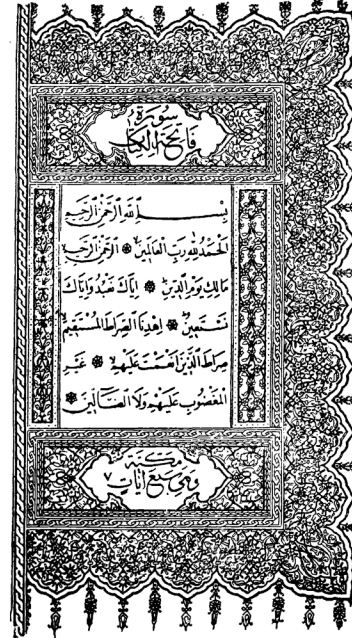 سورة
فاتحة الكتاب
بسم الله الرحمن الرحيم
الحمد لله رب العالمين ❁ الرحمن الرحيم
مالك يوم الدين ❁ اياك نعبد واياك
نستعين ❁ اهدنا الصراط المستقيم
صراط الذين انعمت عليهم ❁ غير
المغضوب عليهم ولا الضالين ❁
مكية
وهي سبع آيات ٧